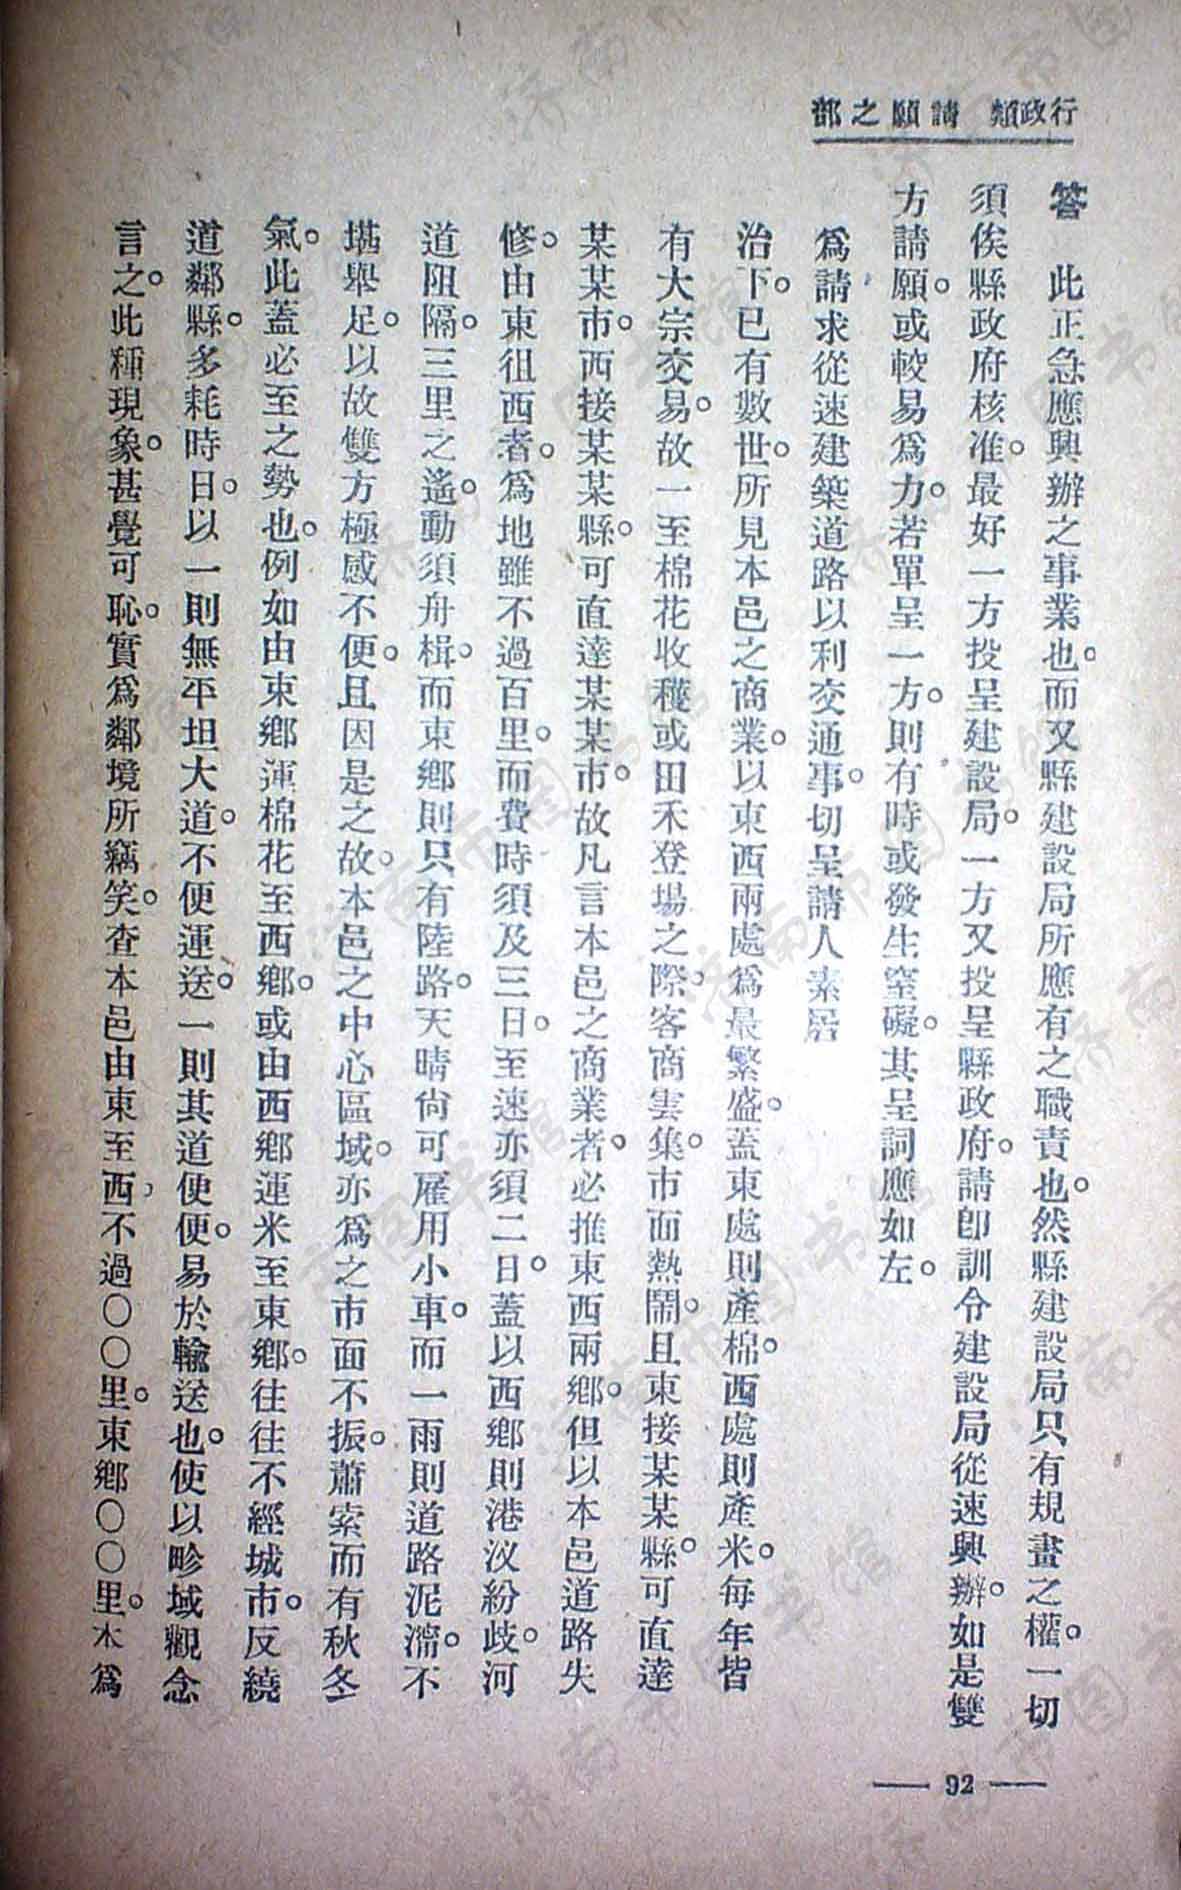 行政類 請願之部
答 此正急應興辦之事業也。而又縣建設局所應有之職責也。然縣建設局只有規畫之權。一切
須俟縣政府核准。最好一方投呈建設局。一方又投呈縣政府。請卽訓令建設局從速興辦。如是雙
方請願。或較易爲力。若單呈一方。則有時或發生窒礙。其呈詞應如左。
爲請求從速建築道路以利交通事。切呈請人素居
治下。已有數世。所見本邑之商業。以東西兩處爲最繁盛。蓋東處則產棉。西處則產米。每年皆
有大宗交易。故一至棉花收穫或田禾登場之際。客商雲集。市面熱鬧。且東接某某縣。可直達
某某市。西接某某縣。可直達某某市。故凡言本邑之商業者。必推東西兩鄉。但以本邑道路失
修。由東徂西者。爲地雖不過百里。而費時須及三日。至速亦須二日。蓋以西鄉則港汊紛歧。河
道阻隔。三里之遙。動須舟楫。而東鄉則只有陸路。天晴尙可雇用小車。而一雨則道路泥濘。不
堪舉足。以故雙方極感不便。且因是之故。本邑之中心區域。亦爲之市面不振。蕭索而有秋冬
氣。此蓋必至之勢也。例如由東鄉運棉花至西鄉。或由西鄉運米至東鄉。往往不經城市。反繞
道鄰縣。多耗時日。以一則無平坦大道。不便運送。一則其道便便。易於輸送也。使以畛域觀念
言之。此種現象。甚覺可恥。實爲鄰境所竊笑。查本邑由東至西，不過〇〇里。東鄉〇〇里。本爲
— 92 —